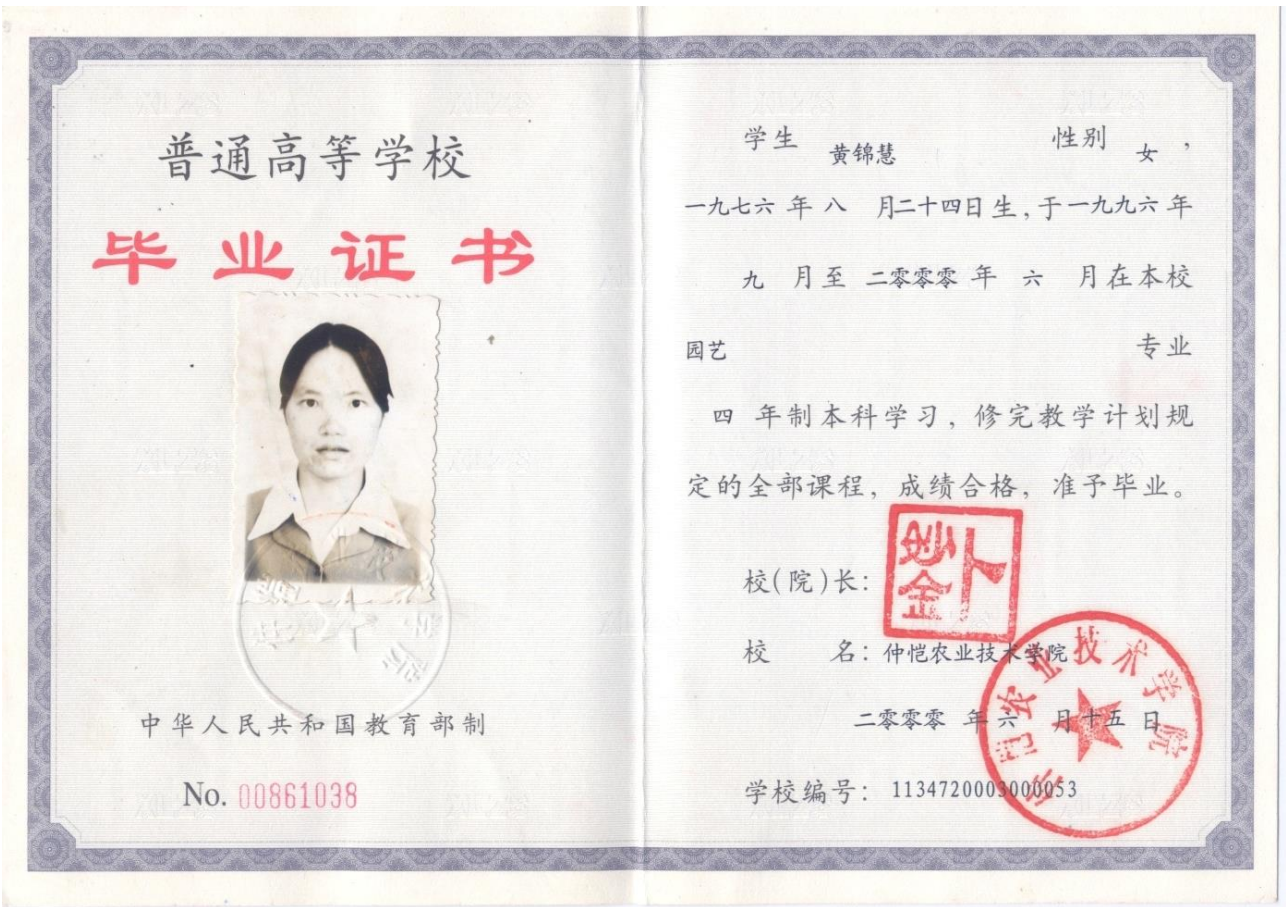 普通高等学校
毕业证书
中华人民共和国教育部制
No. 00861038
学生 黄锦慧 性别 女，
一九七六 年 八 月二十四日生，于一九九六 年
九 月至 二零零零 年 六 月在本校
园艺 专业
四 年制本科学习，修完教学计划规
定的全部课程，成绩合格，准予毕业。
校(院)长：
校 名：仲恺农业技术学院
二零零零 年 六 月 十五 日
学校编号：1134720003000053
仲恺农业技术学院